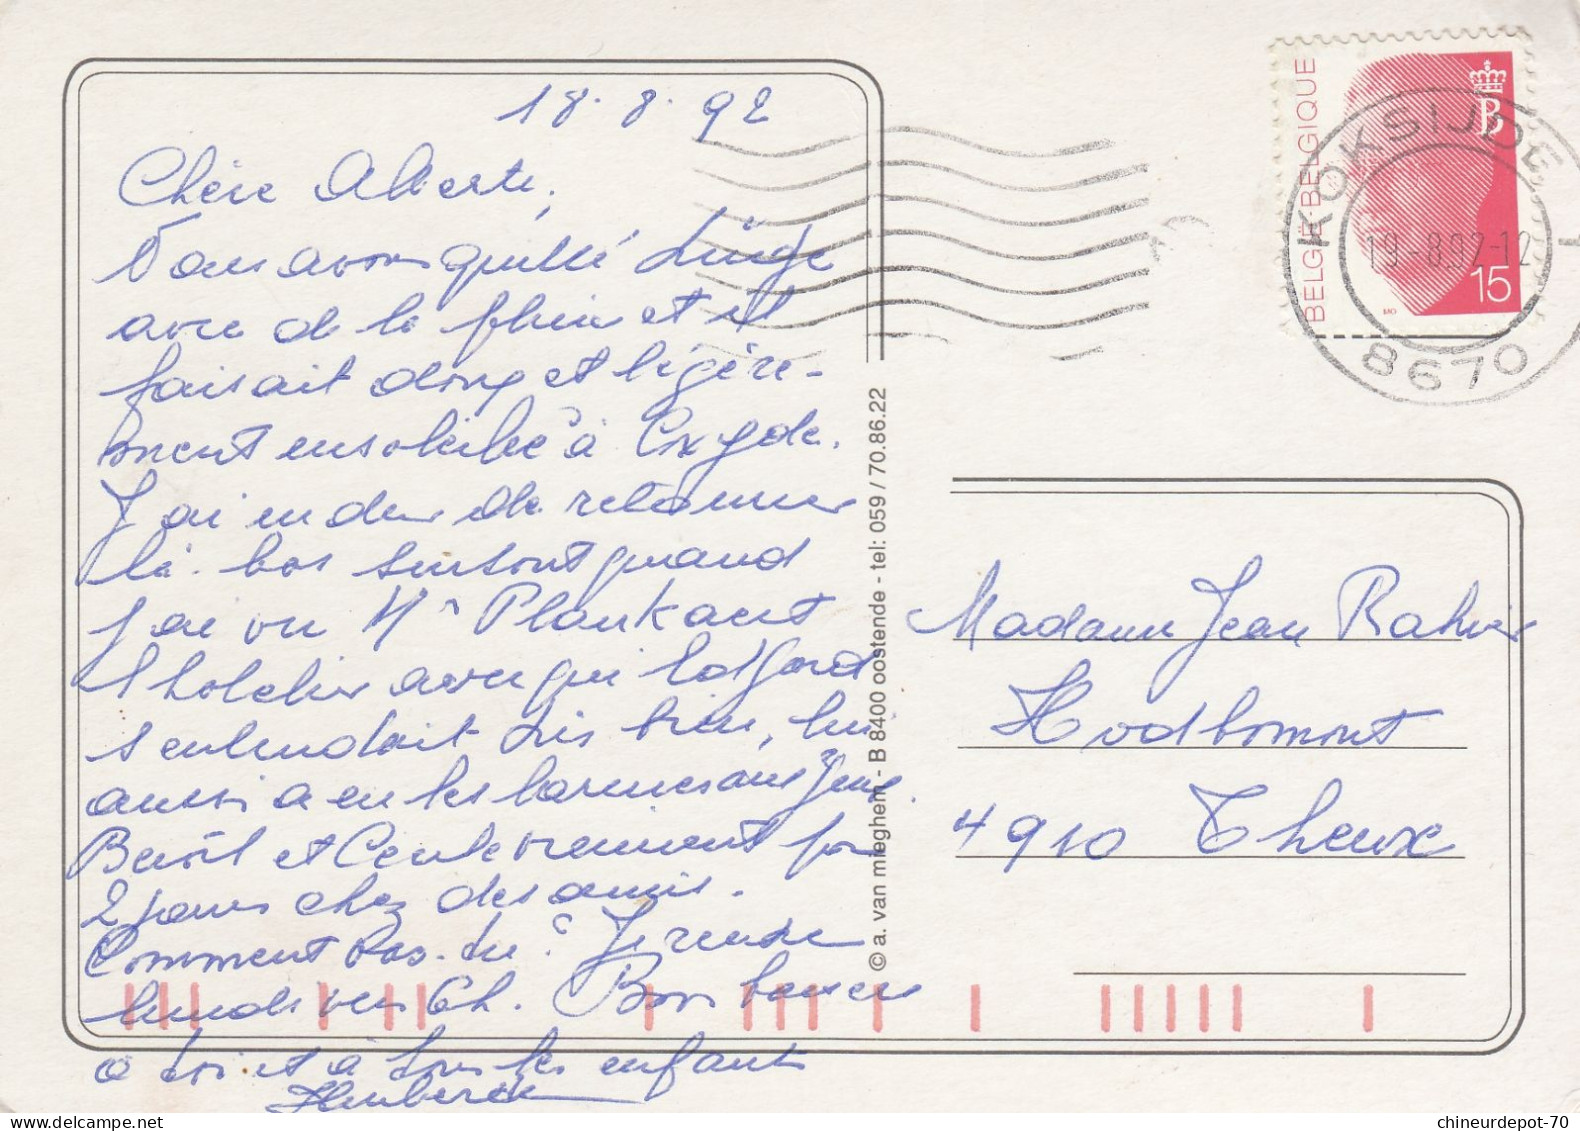 18.8.92
Chère Alberte,
Nous avons quitté Liège
avec de la pluie et il
faisait doux et légère-
ment ensoleillé à Coxyde.
J'ai eu dur de retourner
là-bas surtout quand
j'ai vu Mr Plankaert
l'hôtelier avec qui
s'entendait très bien, lui
aussi a eu les larmes aux yeux.
Benoît et Cécile viennent pr
2 jours chez des amis.
Comment vas-tu? Je rentre
lundi vers 6h. Bons baisers
à toi et à tous les enfants
BELGIË-BELGIQUE
B
15
MO
KOKSIJDE 1
19-8.92-12
8670
© a. van mieghem - B 8400 oostende - tel: 059 / 70.86.22
Madame Jean Rahier
Hodbomont
4910 Theux
chineurdepot-70
www.delcampe.net